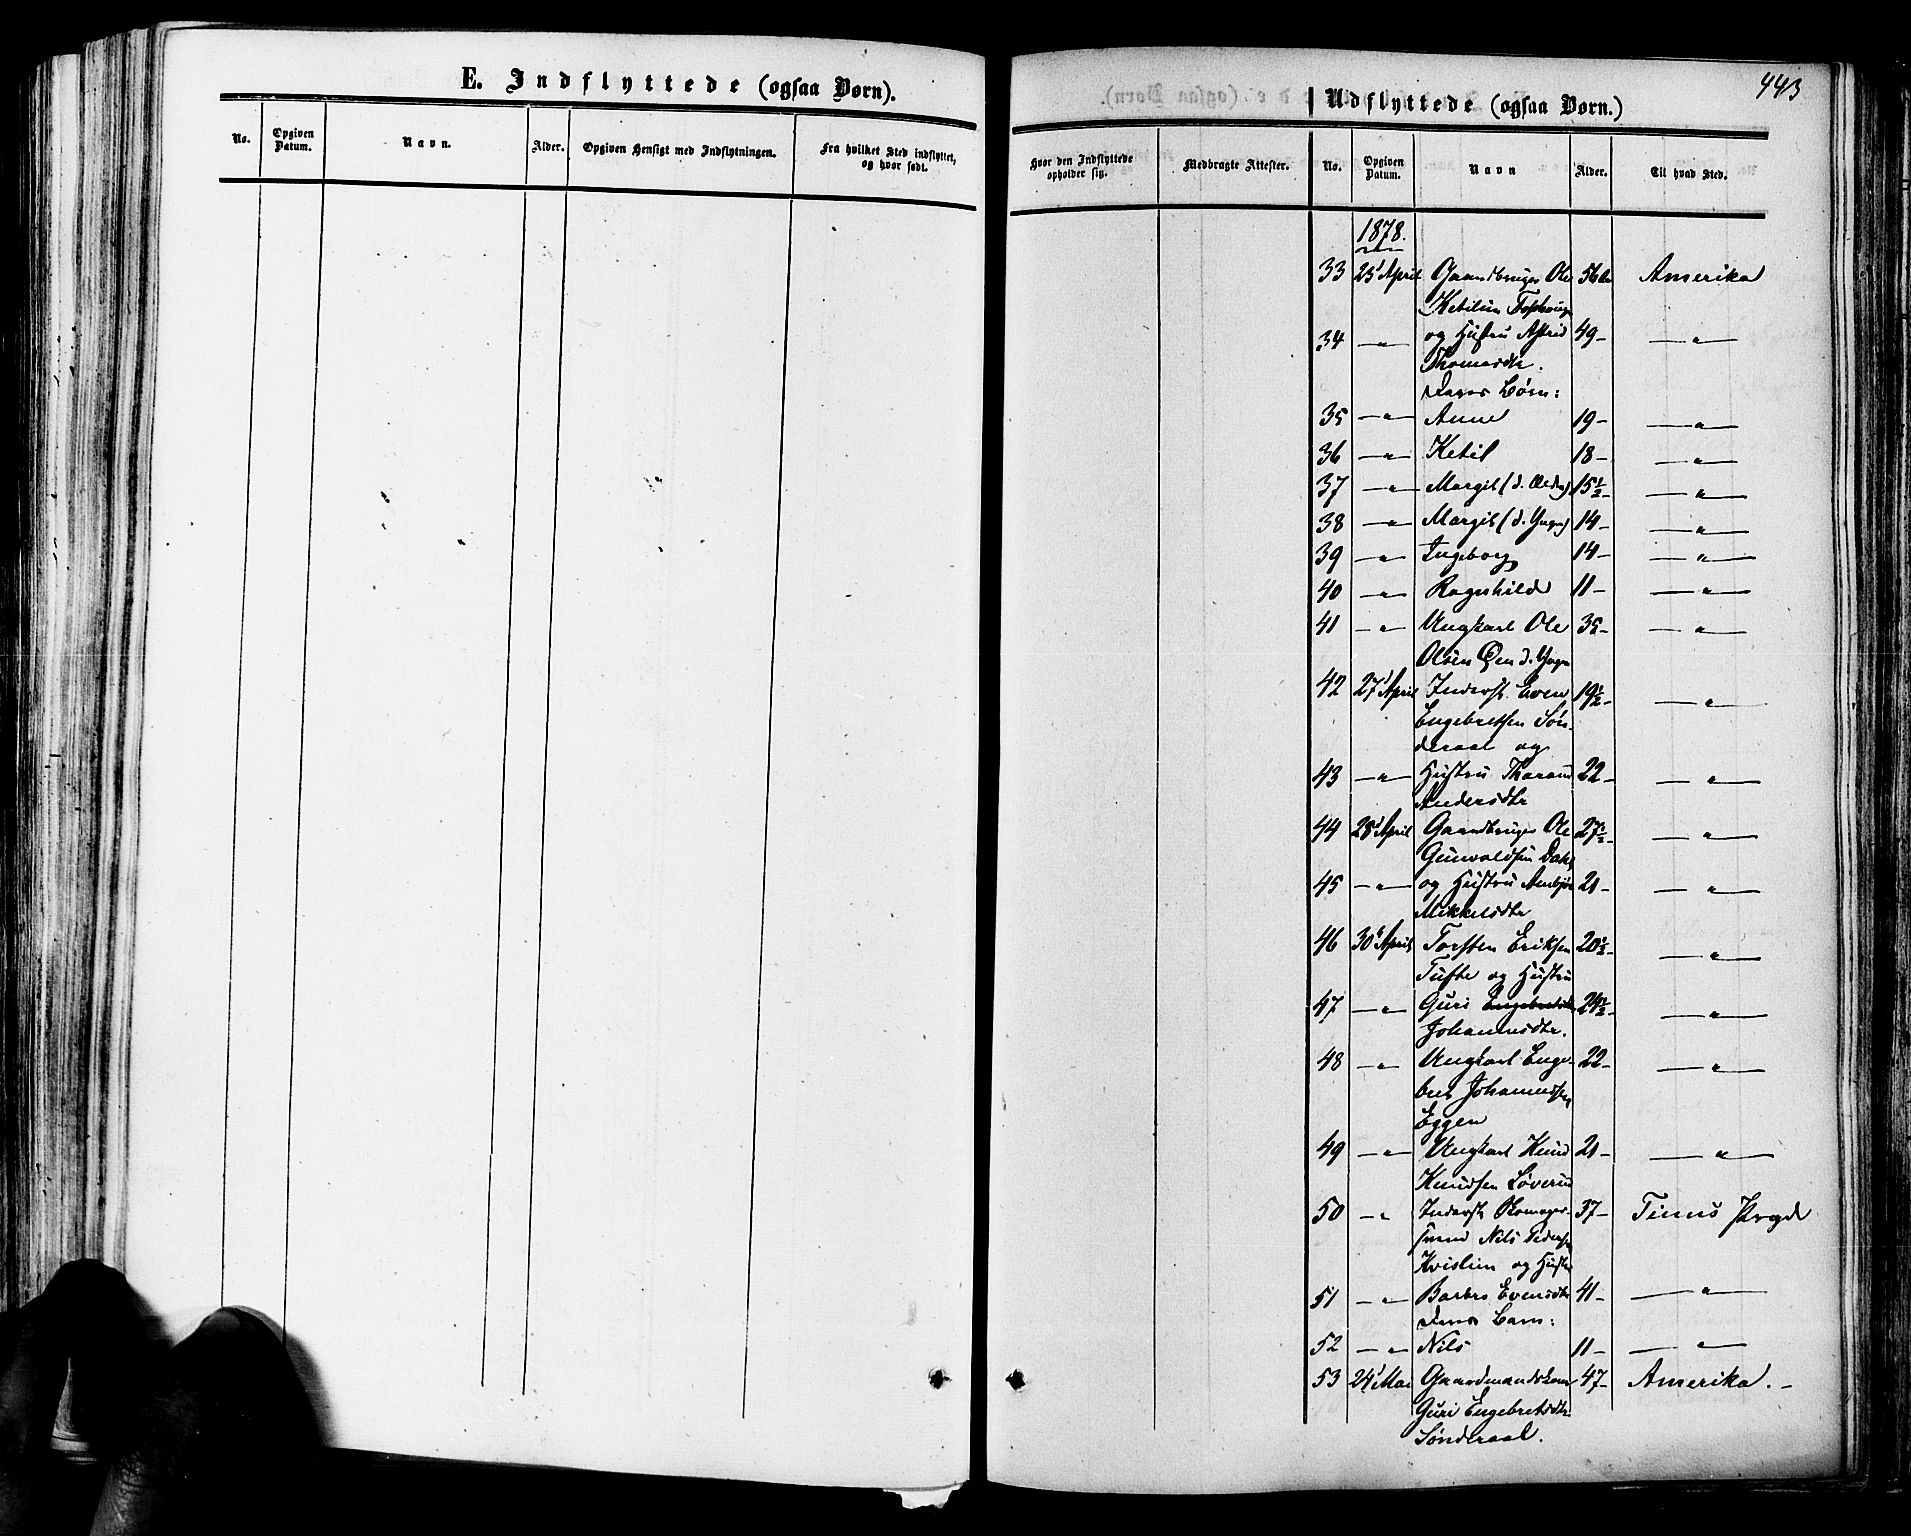 E. Indflyttede (ogsaa Børn).
No.
Opgiven Datum.
Navn.
Alder.
Opgiven Hensigt med Indflytningen.
Fra hvilket Sted indflyttet, og hvor født.
443
Udflyttede (ogsaa Børn.)
Hvor den Indflyttede opholder sig.
Medbragte Attester.
No.
Opgiven Datum.
Navn
Alder.
Til hvad Sted.
1878.
33 25 April Gaardbruger Ole 56 Amerika
Ketilsen
34 —„— og Hustru Astrid 49- —„—
Thomasdtr.
Deres Børn:
35 —„— Anne 19- —„—
36 —„— Ketil 18- —„—
37 —„— Margit (d. Ældre) 15½- —„—
38 —„— Margit (d. Yngre) 14- —„—
39 —„— Ingeborg 14- —„—
40 —„— Ragnhild 11- —„—
41 —„— Ungkarl Ole 35- —„—
Olsen Øen d. Yngre
42 27 April Inderst. Even 19½- —„—
Engebretsen Søn-
deraal og
43 —„— Hustru Thorand 22- —„—
Andersdtr
44 28 April Gaardbruger Ole 27½- —„—
Gunvaldsen Dahl
45 —„— og Hustru Aembjør 21- —„—
Mikkelsdtr
46 30 April Torsten Eriksen 20½- —„—
Tufte og Hustru
47 —„— Guri Engebretsdtr 24½- —„—
Johannesdtr.
48 —„— Ungkarl Enge- 22- —„—
bret Johannessen
Eggen
49 —„— Ungkarl Knud 21- —„—
Knudsen Løverud
50 —„— Inderst Skomager- 37- Tinns Prgd
svend Nils Pedersen
og Hustru
51 —„— Barbro Evensdtr 41- —„—
Deres Barn:
52 —„— Nils 11- —„—
53 24 Mai Gaardmandskone 47- Amerika.-
Guri Engebretsdtr
Sønderaal.